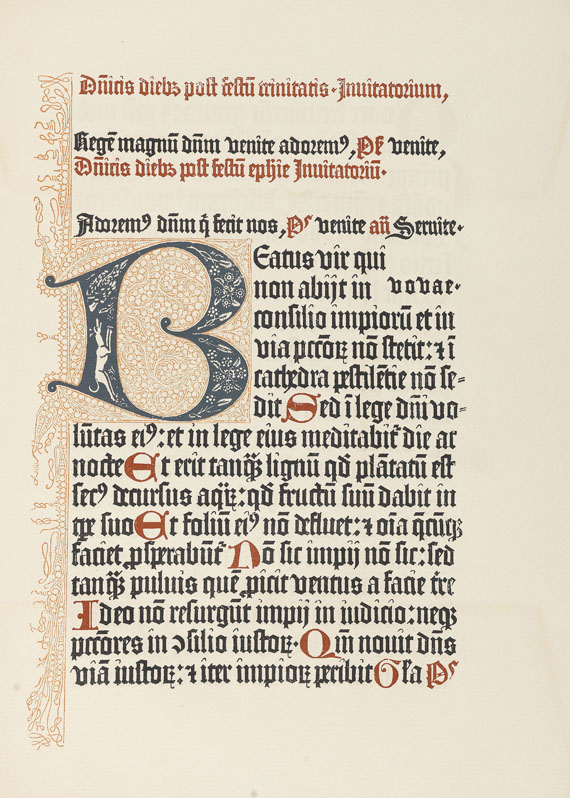 Dn̄icis dieb⁊ post festū trinitatis · Inuitatorium,
Regē magnū dn̄m venite adorem⁹, Ps̄ venite,
Dn̄icis dieb⁊ post festū ephie Inuitatoriū·
Adorem⁹ dn̄m q̄ fecit nos, Ps venite an̄ Seruite·
Beatus vir qui
non abijt in vovae·
consilio impiorū et in
via pcc̄oꝝ nō stetit: ⁊ ī
cathedra pestilētie nō se-
dit Sed ī lege dn̄i vo-
lūtas ei⁹: et in lege eius meditabit̄ die ac
nocte Et erit tanq̄ȝ lignū qd̄ plātatū est
sec⁹ decursus aqꝝ: qd̄ fructū suū dabit in
tp̄e suo Et foliū ei⁹ nō defluet: ⁊ oīa q̄cūqȝ
faciet ꝓsperabūt̄ Nō sic impij nō sic: sed
tanq̄ȝ puluis quē ꝓicit ventus a facie tr̄e
Ideo nō resurgūt impij in iudicio: neqȝ
pcc̄ores in ↄsilio iustoꝝ· Qm̄ nouit dn̄s
viā iustoꝝ: ⁊ iter impioꝝ peribit Gl̄a Ps